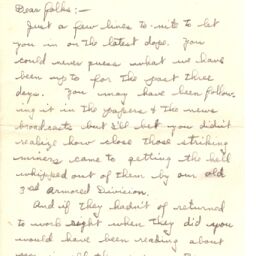 Dear folks:—
Just a few lines to-nite to let
you in on the latest dope. You
could never guess what we have
been up to for the past three
days. You may have been follow-
ing it in the papers & the news
broadcasts but I'll bet you didn't
realize how close those striking
miners came to getting the hell
whipped out of them by our old
3rd Armored Division.
And if they hadn't of returned
to work right when they did you
would have been reading about